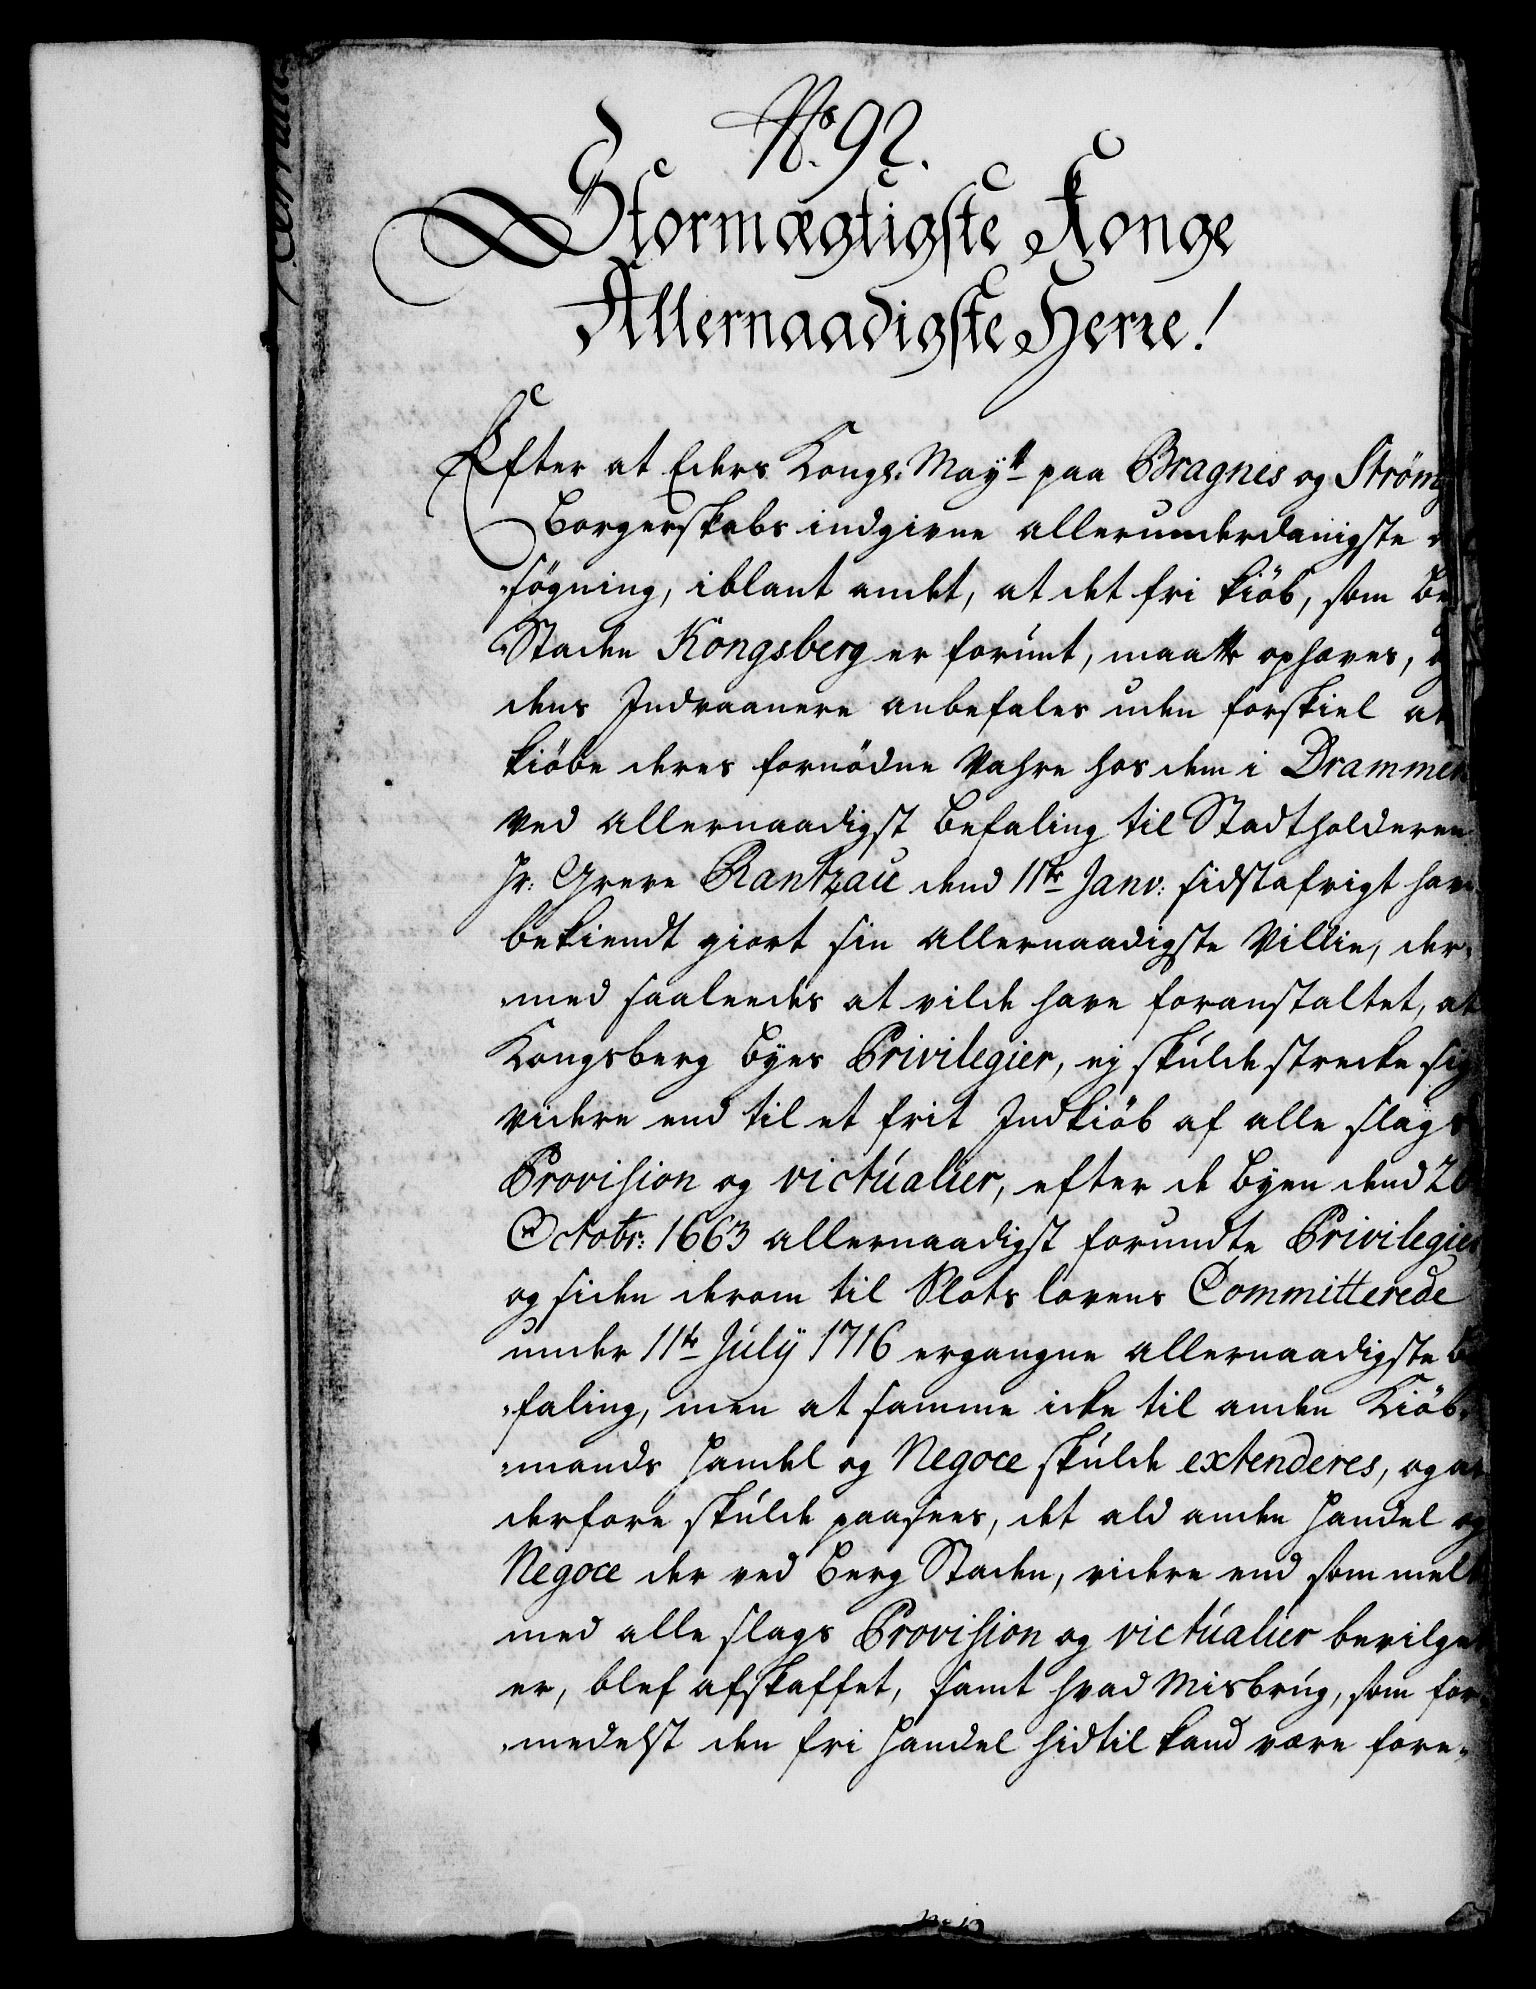 No. 92.
Stormægtigste Konge
Allernaadigste Herre!
Efter at Eders Kongl: Mayᵗᵗ paa Bragnes og Strömsö
Borgerskabs indgivne allerunderdanigste
søgning, iblant andet, at det fri kiöb, som Be
Staden Kongsberg er forúnt, maatte ophæves, og
dens Indvaanere anbefales uden forskiel at
kiöbe deres fornödne Vahre hos dem i Drammen
ved allernaadigst Befaling til Stadtholderen
Hr: Greve Rantzaú dend 11te Janv: sidstafvigt have
bekiendt giort sin allernaadigste Villie, der-
med saaleedes at vilde have foranstaltet, at
Kongsberg Byes Privilegier, ej skúlde strecke sig
videre end til et frit Indkiöb af alle slags
Provision og victúalier, efter de Byen dend 20
Octobr: 1663 allernaadigst forundte Privilegier
og siden derom til Slots lovens Committerede
under 11te Júlÿ 1716 ergangne allernaadigste Be
faling, men at samme icke til anden Kiöb-
mands Handel og Negoce skúlde extenderes, og at
derfore skúlde paasees, det ald anden Handel og
Negoce der ved Berg Staden, videre end som melt
med alle slags Provision og victúalier bevilget
er, blef afskaffet, samt hvad Misbrúg, som for-
medelst den fri Handel hidtil kand være fore-